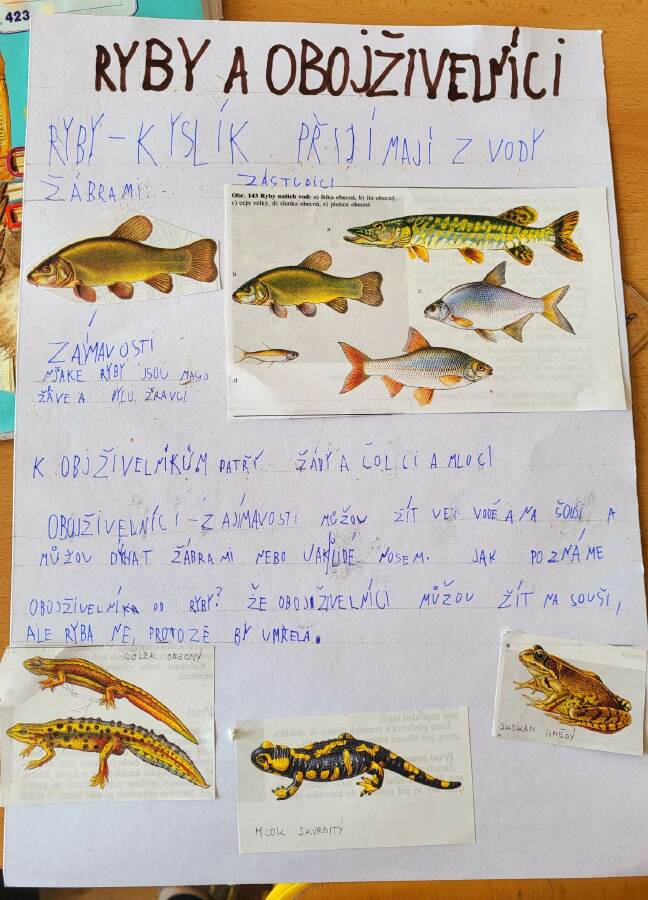 423
RYBY A OBOJŽIVELNÍCI
RYBY – KYSLÍK PŘIJÍMAJÍ Z VODY
ŽÁBRAMI. ZÁSTUDÍCI
Obr. 143 Ryby našich vod: a) štika obecná, b) lín obecný,
c) cejn velký, d) slunka obecná, e) plotice obecná
a
b
c
d
e
ZAJÍMAVOSTI
RYBY JSOU
ŽÁVE A BÝLO ŽRAVCI
K OBOJŽIVELNÍKŮM PATŘÝ ŽÁBY A ČOLCI A MLOCI
OBOJŽIVELNÍCI - ZAJÍMAVOSTI MŮŽOU ŽÍT VE VODĚ A NA SOUŠI A
MŮŽOU DÝHAT ŽÁBRAMI NEBO NOSEM. JAK POZNÁME
OBOJŽIVELNÍKA OD RYBY? ŽE OBOJŽIVELNÍCI MŮŽOU ŽÍT NA SOUŠI,
ALE RYBA NE, PROTOŽE BY UMŘELA.
ČOLEK OBECNÝ
SKOKAN HNĚDÝ
MLOK SKVRNITÝ